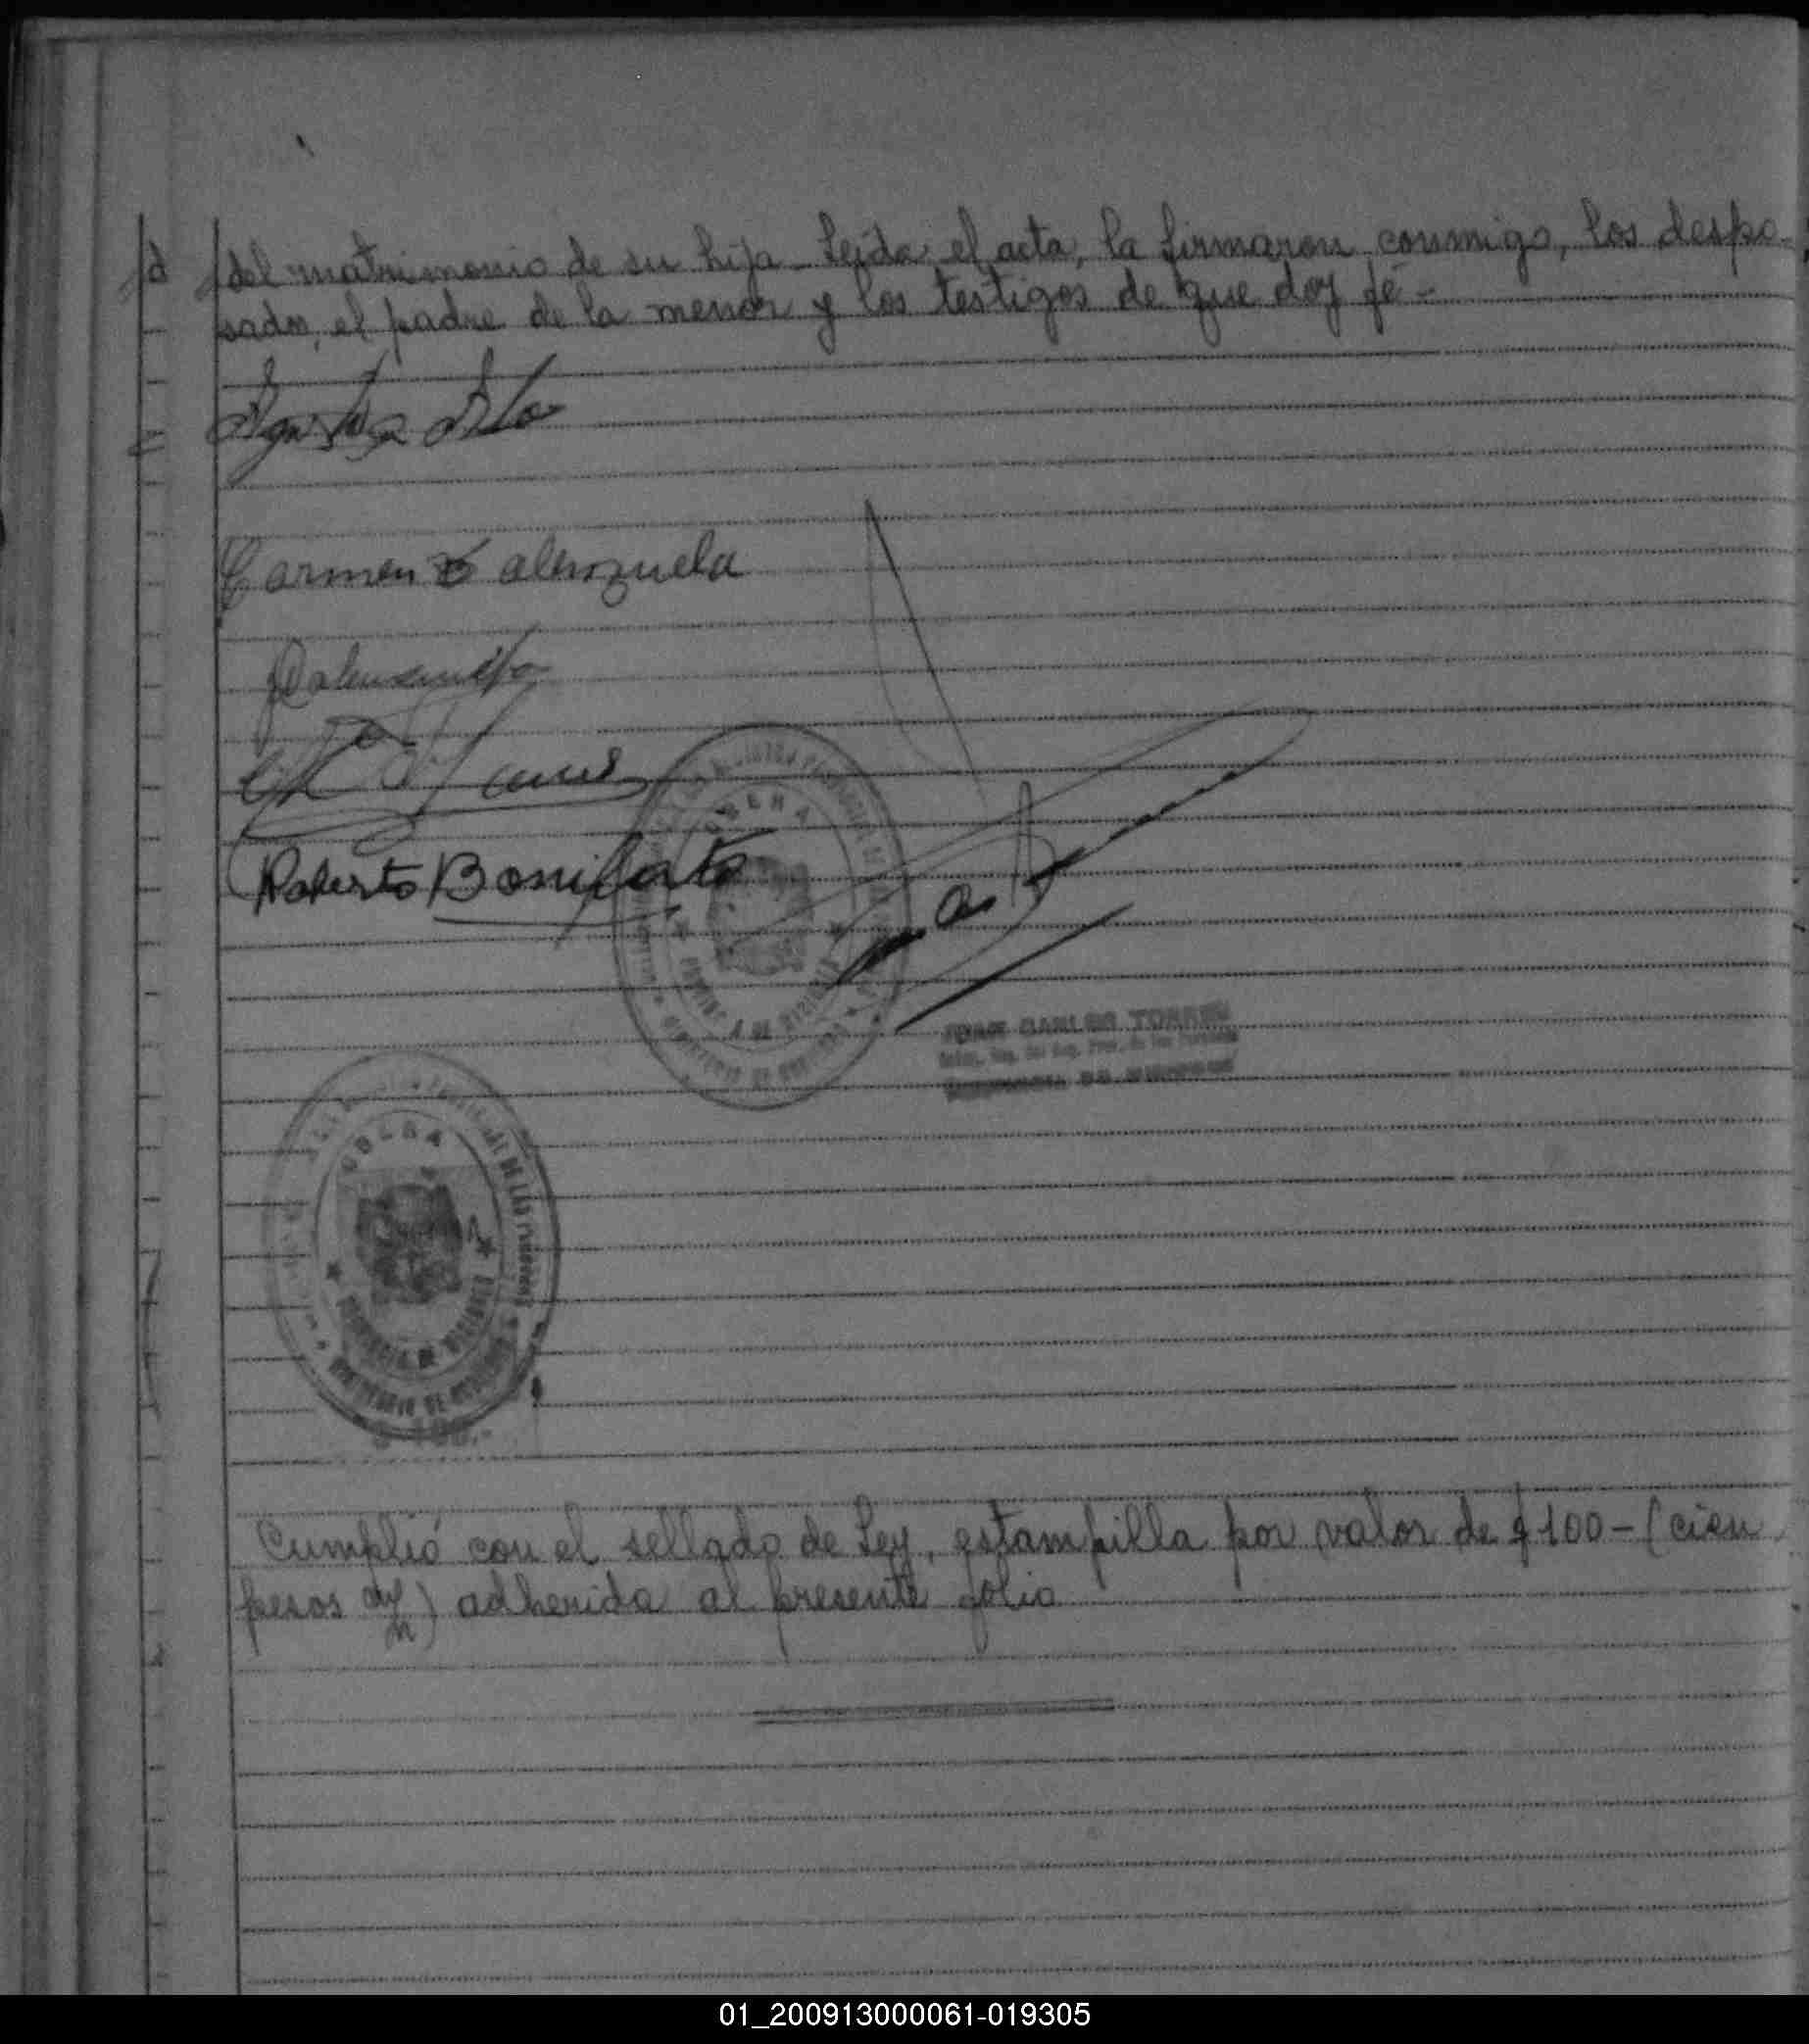 del matrimonio de su hija - Leída el acta, la firmaron conmigo, los despo-
sados, el padre de la menor y los testigos de que doy fé -
Carmen Valenzuela
Valenzuela
Roberto Bonifato
OBERA
JUAN CARLOS TORRES
OBERA
DE LAS PERSONAS
PROVINCIA DE MISIONES
$ 100.-
Cumplió con el sellado de Ley, estampilla por valor de $ 100 - (cien
pesos m/n) adherida al presente folio
01_200913000061-019305